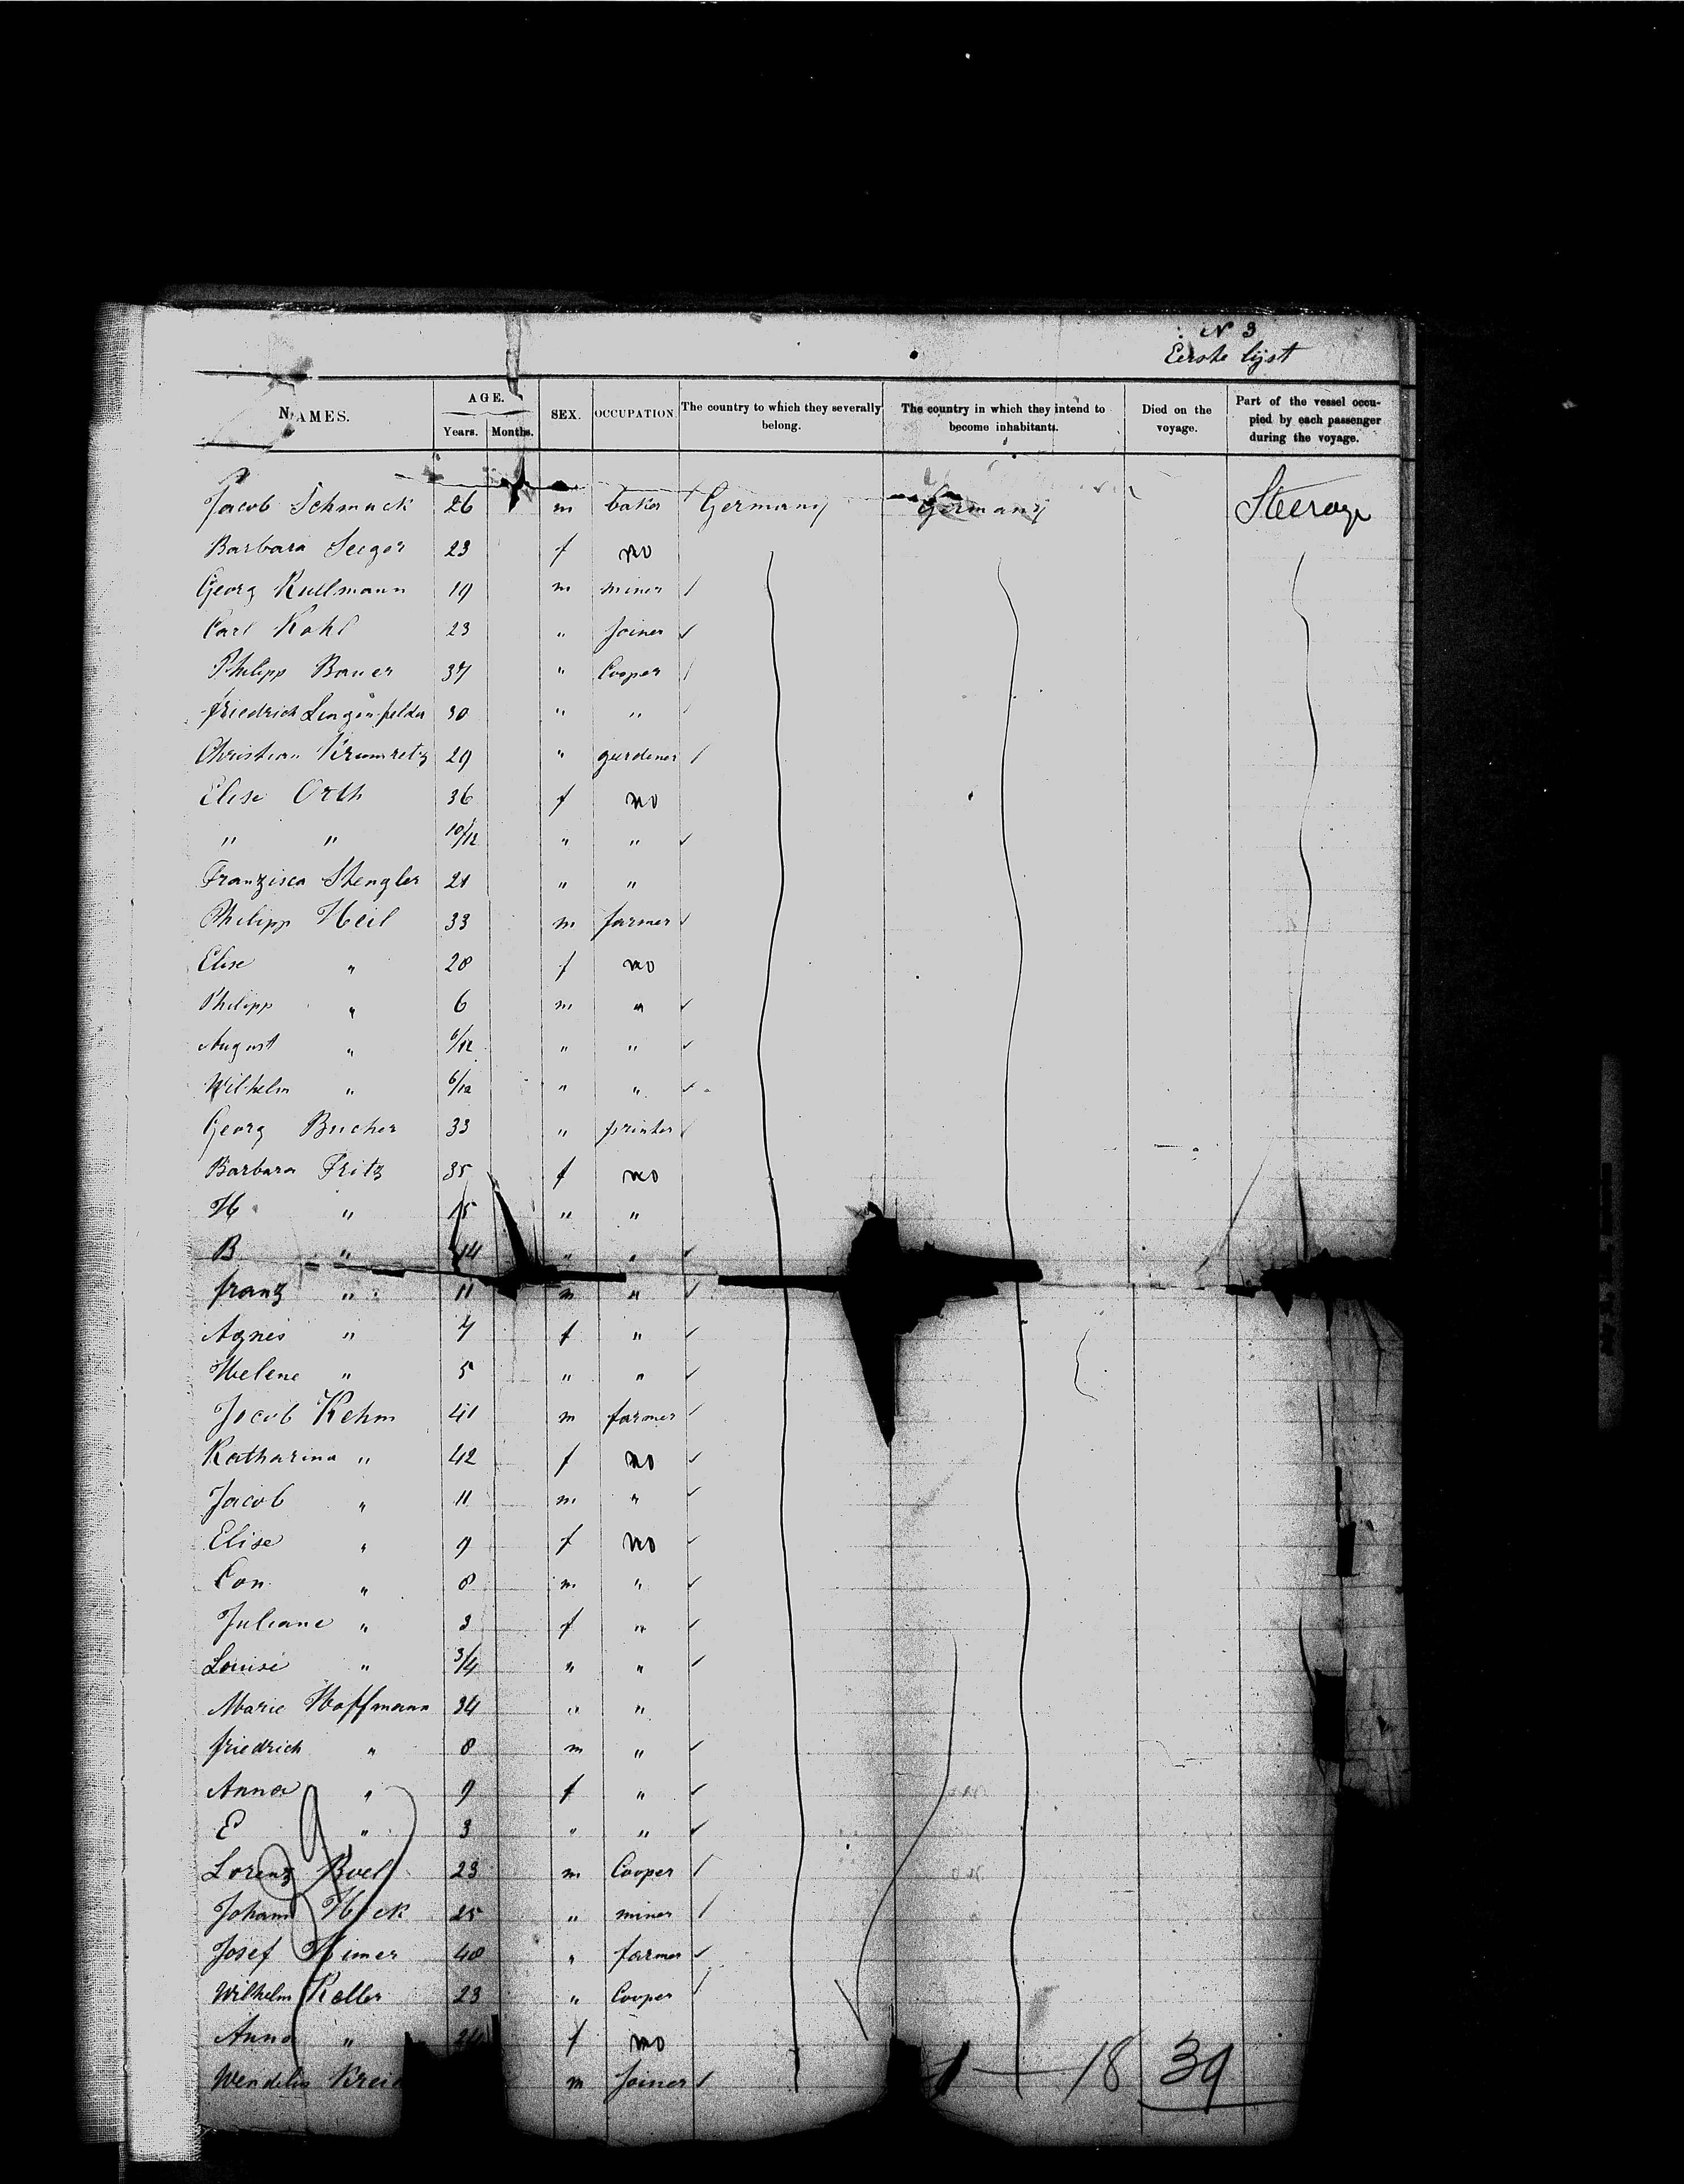 N 3
Eerste lijst
NAMES. AGE. Years. Months. SEX. OCCUPATION. The country to which they severally belong. The country in which they intend to become inhabitants. Died on the voyage. Part of the vessel occupied by each passenger during the voyage.
Jacob Schmuck 26 m baker Germany Germany Steerage
Barbara Seeger 23 f no
Georg Kullmann 19 m miner
Carl Kohl 23 " Joiner
Philipp Bauer 37 " Cooper
friedrich Lingenfelder 30 " "
Christian 29 " gardener
Elise Orth 36 f no
" " 10/12 " "
Franzisca Stengler 21 " "
Philipp Heil 33 m farmer
Elise " 28 f no
Philipp " 6 m "
August " 6/12 " "
Wilhelm " 6/12 " "
Georg Bucher 33 " printer
Barbara Fritz 35 f no
H " 15 " "
B " 14 " "
franz " 11 m "
Agnes " 7 f "
Helene " 5 " "
Jacob Kehm 41 m farmer
Katharina " 42 f no
Jacob " 11 m "
Elise " 9 f no
Con " 8 m "
Juliane " 3 f "
Louise " 3/4 " "
Marie Hoffmann 34 " "
friedrich " 8 m "
Anna " 9 f "
E " 3 " "
Lorenz 23 m Cooper
Johann 25 " miner
Josef 48 " farmer
Wilhelm Keller 23 " Cooper
Anna " f no
Wendelin m Joiner
1 — 18 39